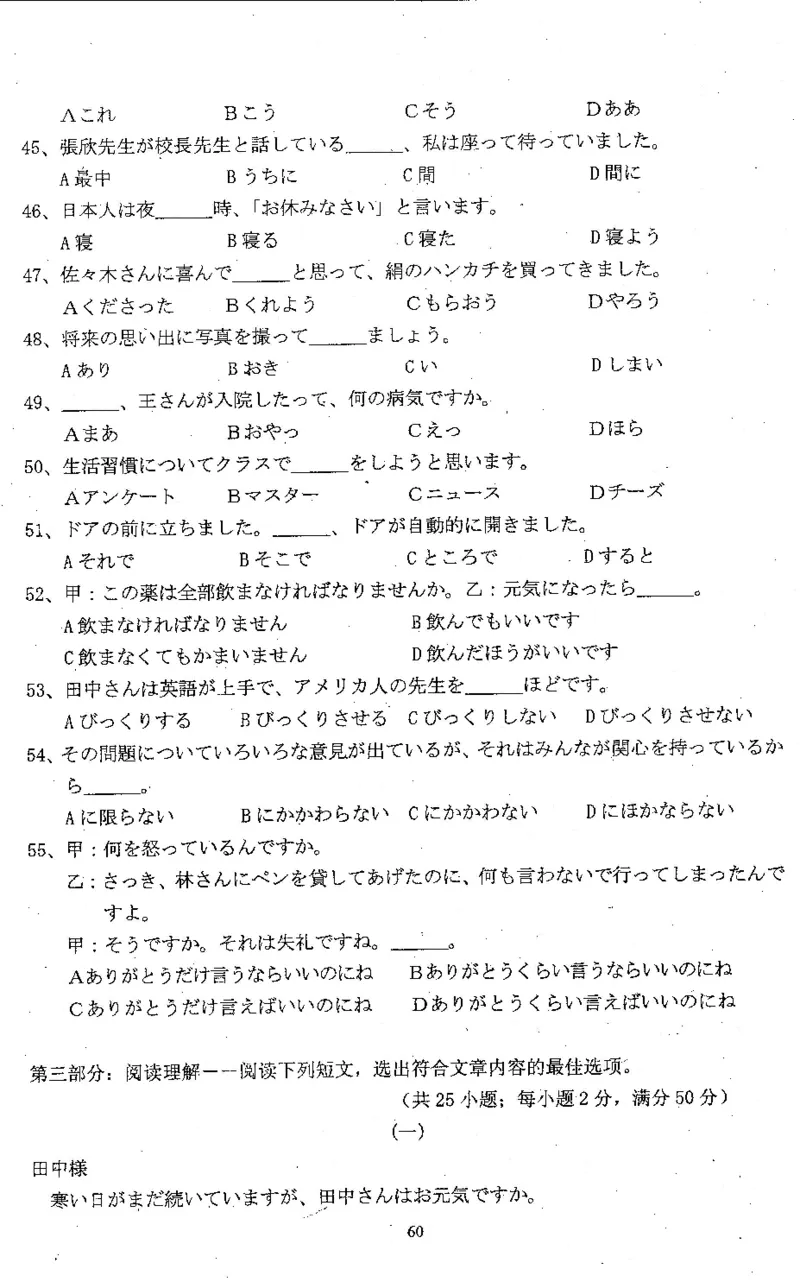 Aこれ Bこう Cそう Dああ
45、張欣先生が校長先生と話している______、私は座って待っていました。
A最中 Bうちに C間 D間に
46、日本人は夜______時、「お休みなさい」と言います。
A寝 B寝る C寝た D寝よう
47、佐々木さんに喜んで______と思って、絹のハンカチを買ってきました。
Aくださった Bくれよう Cもらおう Dやろう
48、将来の思い出に写真を撮って______ましょう。
Aあり Bおき Cい Dしまい
49、______、王さんが入院したって、何の病気ですか。
Aまあ Bおやっ Cえっ Dほら
50、生活習慣についてクラスで______をしようと思います。
Aアンケート Bマスター Cニュース Dチーズ
51、ドアの前に立ちました。______、ドアが自動的に開きました。
Aそれで Bそこで Cところで Dすると
52、甲：この薬は全部飲まなければなりませんか。乙：元気になったら______。
A飲まなければなりません B飲んでもいいです
C飲まなくてもかまいません D飲んだほうがいいです
53、田中さんは英語が上手で、アメリカ人の先生を______ほどです。
Aびっくりする Bびっくりさせる Cびっくりしない Dびっくりさせない
54、その問題についていろいろな意見が出ているが、それはみんなが関心を持っているか
ら______。
Aに限らない Bにかかわらない Cにかかわない Dにほかならない
55、甲：何を怒っているんですか。
乙：さっき、林さんにペンを貸してあげたのに、何も言わないで行ってしまったんで
すよ。
甲：そうですか。それは失礼ですね。______。
Aありがとうだけ言うならいいのにね Bありがとうくらい言うならいいのにね
Cありがとうだけ言えばいいのにね Dありがとうくらい言えばいいのにね
第三部分：阅读理解－－阅读下列短文，选出符合文章内容的最佳选项。
（共25小题；每小题2分，满分50分）
（一）
田中様
寒い日がまだ続いていますが、田中さんはお元気ですか。
60